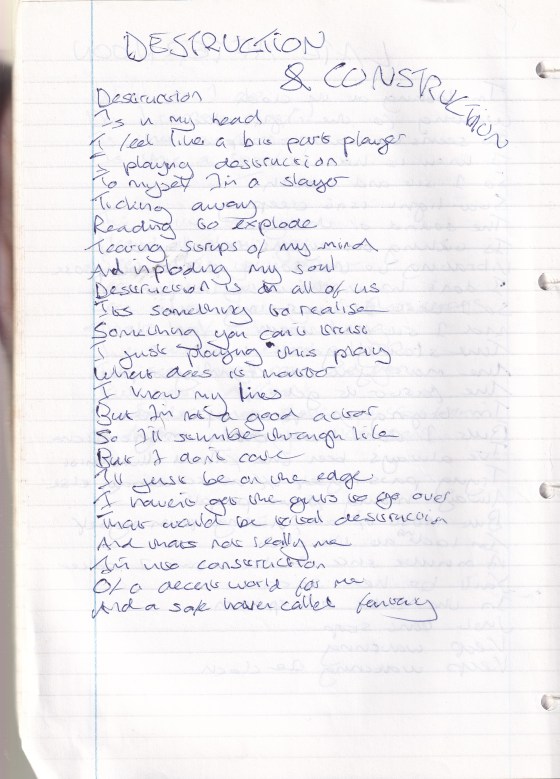 DESTRUCTION
& CONSTRUCTION
Destruction
Is in my head
I feel like a big part player
Is playing destruction
To myself I'm a slayer
Ticking away
Reading to explode
Tearing strips of my mind
And imploding my soul
Destruction is in all of us
Its something to realise
Something you can't
I just playing this play
What does it matter
I know my lines
But I'm not a good actor
So I'll stumble through life
But I don't care
I'll just be on the edge
I haven't got the guts to go over
That would be total destruction
And thats not really me
I'm into construction
Of a decent world for me
And a safe haven called fantasy